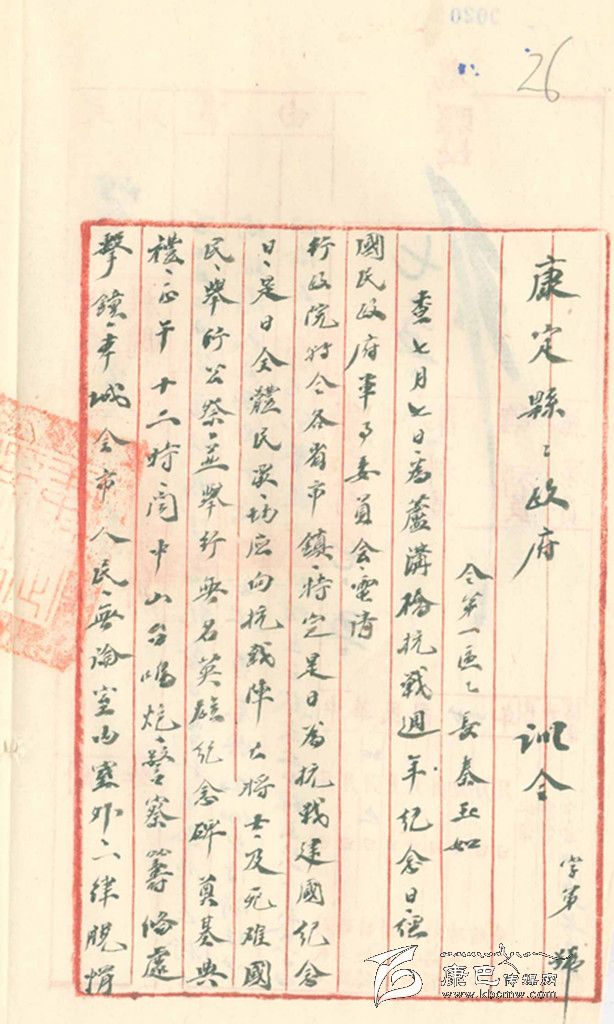 26
康定縣縣政府 訓令 字第 號
令第一區區長秦
查七月七日為蘆溝橋抗戰週年紀念日經
國民政府軍事委員會電請
行政院特令各省市鎮特定是日為抗戰建國紀念
日是日全體民眾均應向抗戰陣亡將士及死難國
民舉行公祭並舉行無名英雄紀念碑奠基典
禮正午十二時聞中山台鳴炮警察籌備處
擊鐘本城全市人民無論室內室外一律脫帽
康巴传媒网
www.kbcmw.com